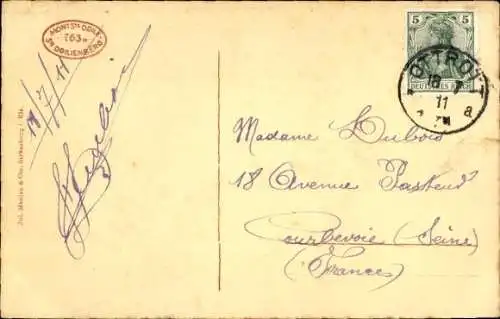 MONT STE ODILE
763m
ST. ODILIENBERG
18/7/11
Jul. Manias & Cie. Strassburg i. Els.
5 5
DEUTSCHES REICH
OTTROTT
18 7
11
a
Madame Dubois
18 Avenue Pasteur
Courbevoie (Seine)
(France)